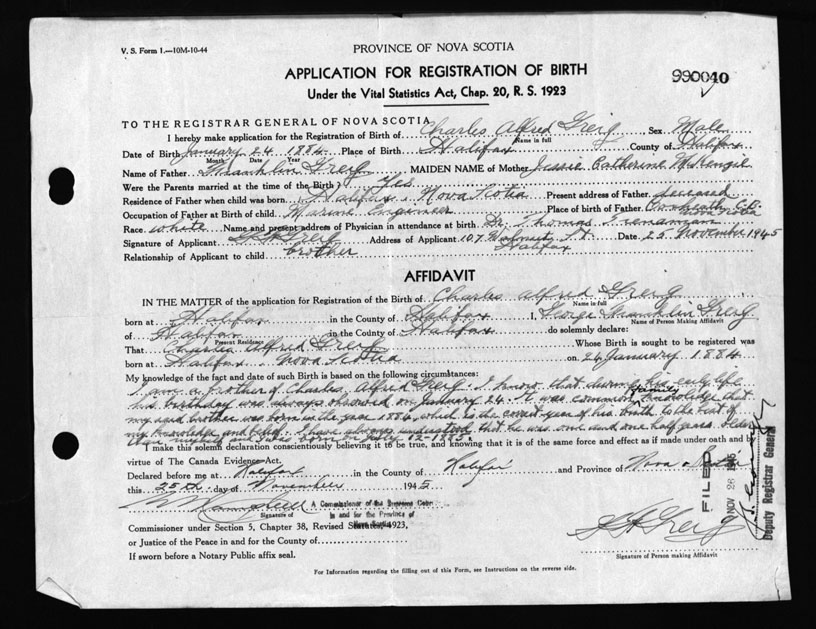 V. S. Form 1.—10M-10-44
PROVINCE OF NOVA SCOTIA
APPLICATION FOR REGISTRATION OF BIRTH
Under the Vital Statistics Act, Chap. 20, R. S. 1923
990040
TO THE REGISTRAR GENERAL OF NOVA SCOTIA
I hereby make application for the Registration of Birth of Charles Alfred Greig Sex Male
Name in full
Date of Birth January 24 1884 Place of Birth Halifax County of Halifax
Month Date Year
Name of Father Franklin Greig MAIDEN NAME of Mother Jessie Catherine McKenzie
Were the Parents married at the time of the Birth? Yes
Residence of Father when child was born Halifax, Nova Scotia Present address of Father deceased
Occupation of Father at Birth of child Marine Engineer Place of birth of Father C.B. Nova Scotia
Race white Name and present address of Physician in attendance at birth Dr. Thomas
Signature of Applicant Greig Address of Applicant 107 St. Halifax Date 25 November 1945
Relationship of Applicant to child brother
AFFIDAVIT
IN THE MATTER of the application for Registration of the Birth of Charles Alfred Greig
Name in full
born at Halifax in the County of Halifax I, George Franklin Greig
Name of Person Making Affidavit
of Halifax in the County of Halifax do solemnly declare:
Present Residence
That Charles Alfred Greig Whose Birth is sought to be registered was
born at Halifax Nova Scotia on 24 January 1884
My knowledge of the fact and date of such Birth is based on the following circumstances:
I am a brother of Charles Alfred Greig. I know that during his early life
his birthday was always observed on January 24. It was common family knowledge that
my said brother was born in the year 1884, which is the correct year of his birth to the best of
my knowledge and belief. I have always understood that he was one and one half years older
than myself and I was born on July 12-1885.
I make this solemn declaration conscientiously believing it to be true, and knowing that it is of the same force and effect as if made under oath and by
virtue of The Canada Evidence Act.
Declared before me at Halifax in the County of Halifax and Province of Nova Scotia
this 25th day of November 1945
A Commissioner of the Supreme Court
in and for the Province of
Nova Scotia
Signature of
Commissioner under Section 5, Chapter 38, Revised Statutes, 1923,
or Justice of the Peace in and for the County of
If sworn before a Notary Public affix seal.
Greig
Signature of Person making Affidavit
FILED
NOV 26 1945
Deputy Registrar General
For Information regarding the filling out of this Form, see Instructions on the reverse side.